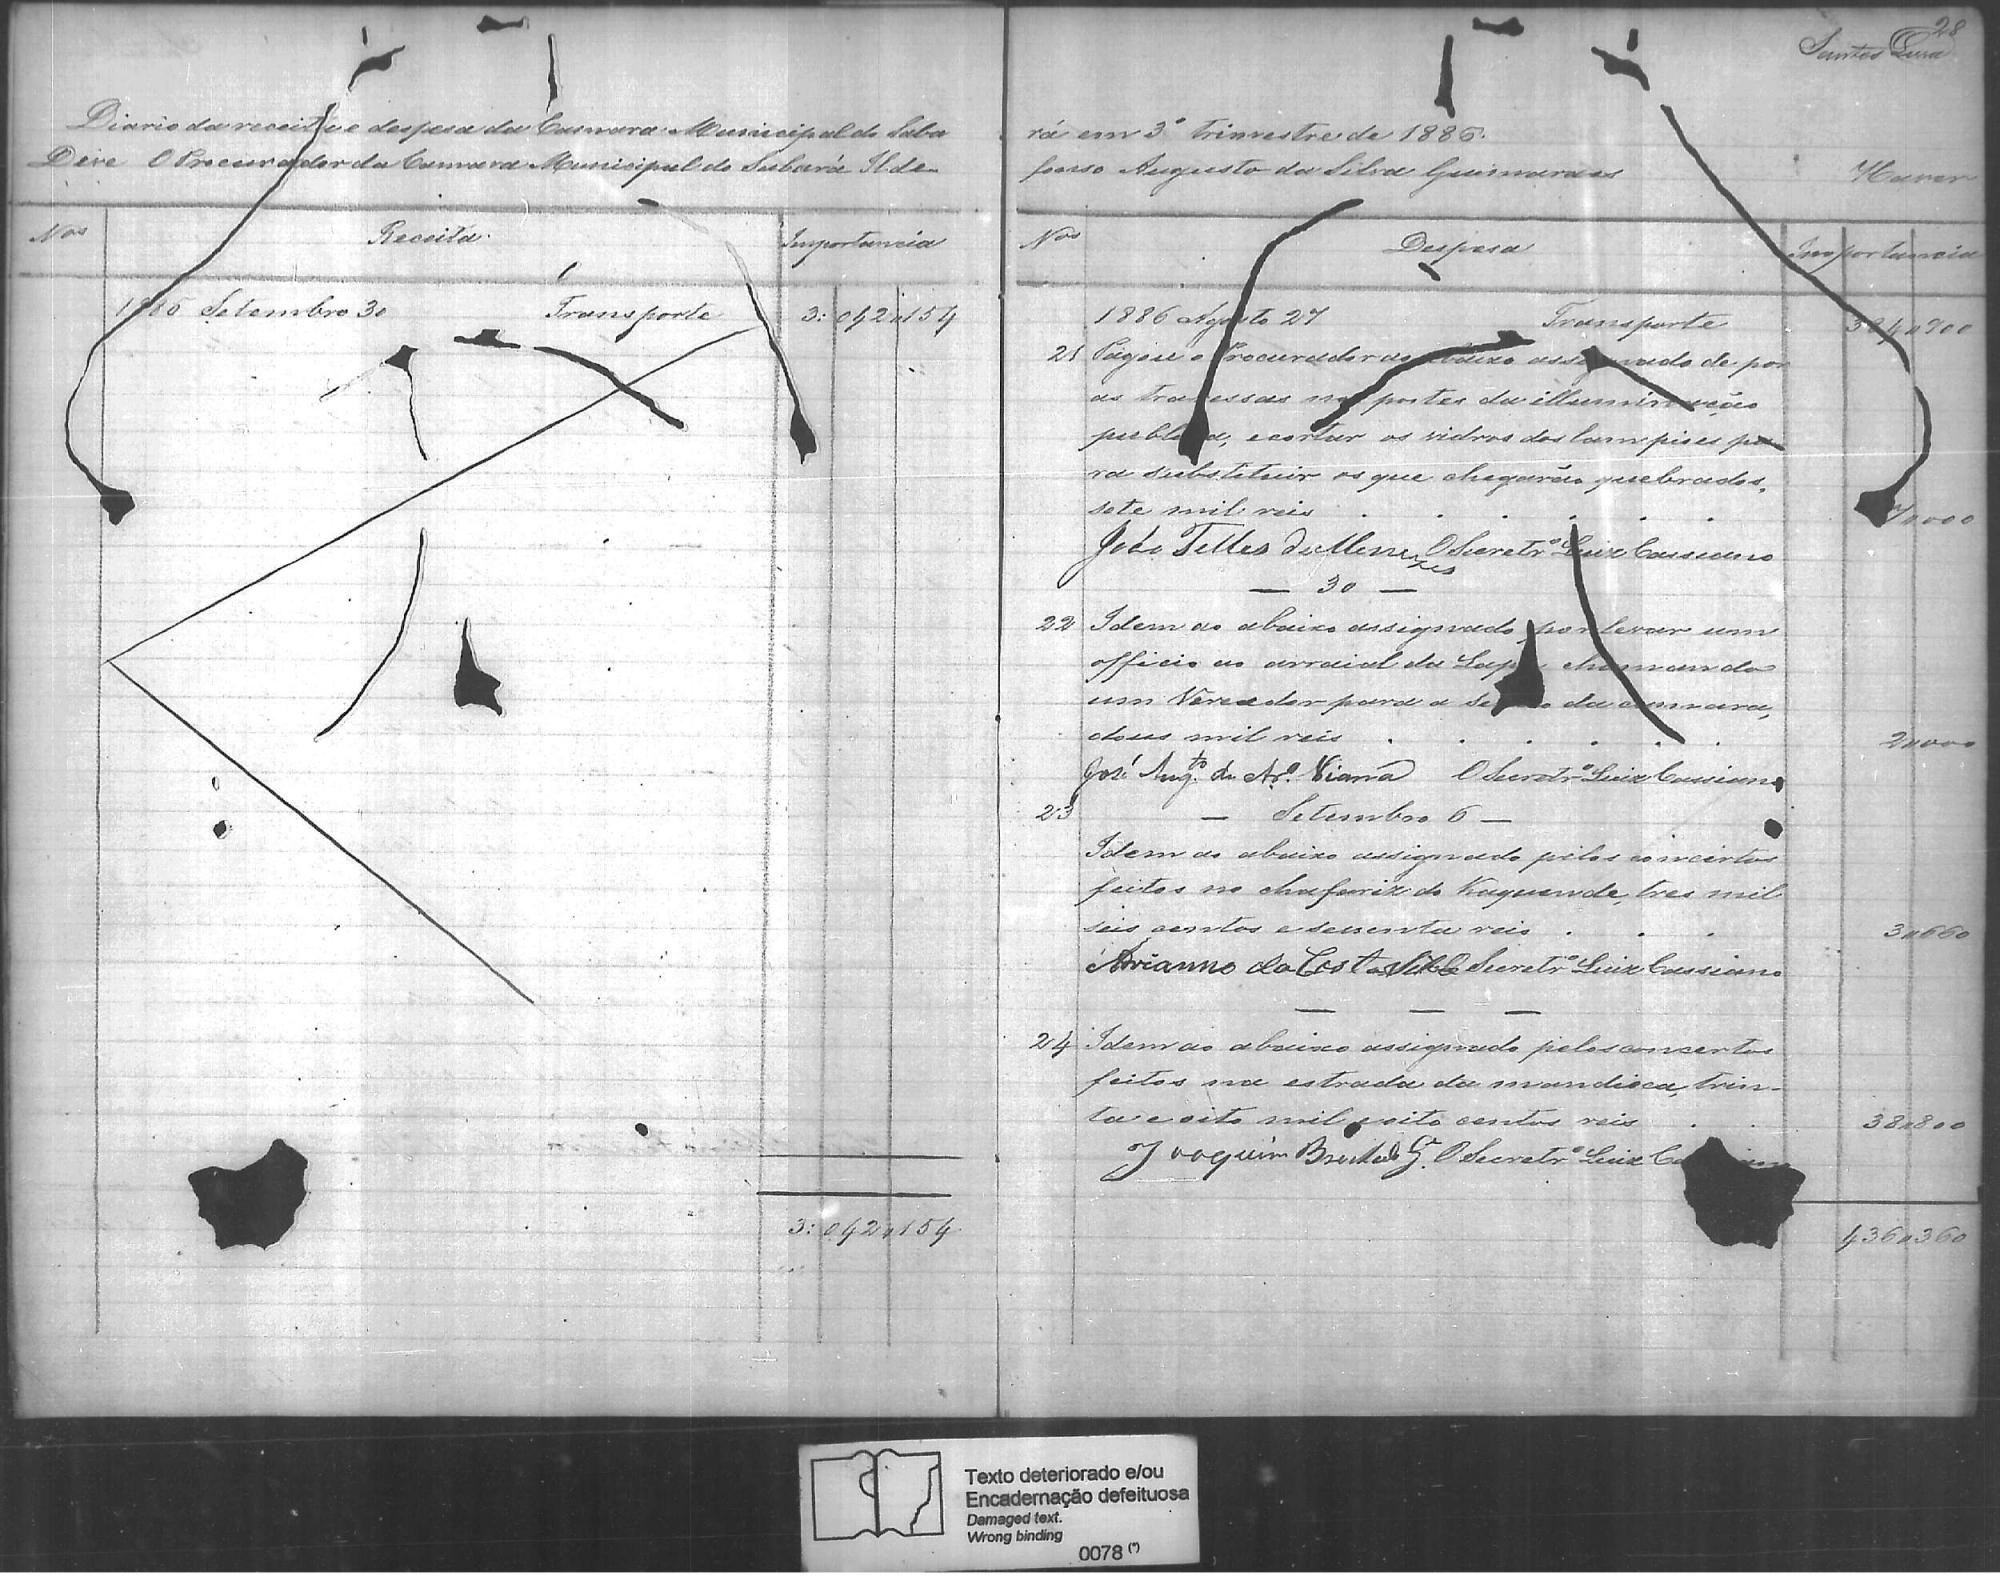 Diario da receita e despesa da Camara Municipal do Saba
Deve O Procurador da Camara Municipal do Sabará Ilde-
Nos Receita Importancia
1886 Setembro 30 Transporte 3:042#154
3:042#154
28
Santos
rá em 3º trimestre de 1886.
fonso Augusto da Silva Guimaraes Haver
Nos Despesa Importancia
1886 Agosto 27 Transporte 384#900
21 Pagou o Procurador ao abaixo assignado de por
as travessas nos postes da illuminação
publica, e cortar os vidros dos lampiões pa
ra substituir os que chegarão quebrados,
sete mil reis . . . . . 7#000
João Telles de Menezes O Secretrº Luiz Cassiano
— 30 —
22 Idem ao abaixo assignado por levar um
officio ao arraial da Lapa chamando
um Vereador para a sessão da camara,
dous mil reis . . . . . 2#000
José Augto de Arº Viana O Secretrº Luiz Cassiano
23 — Setembro 6 —
Idem ao abaixo assignado pelos concertos
feitos no chafariz do Kaquende, tres mil
seis centos e sessenta reis . . . 3#660
Adrianno da Costa O Secretrº Luiz Cassiano
— — —
24 Idem ao abaixo assignado pelos concertos
feitos na estrada da mandioca, trin-
ta e oito mil e oito centos reis . . 38#800
Joaquim O Secretrº Luiz Cassiano
436#360
Texto deteriorado e/ou
Encadernação defeituosa
Damaged text.
Wrong binding
0078 (*)